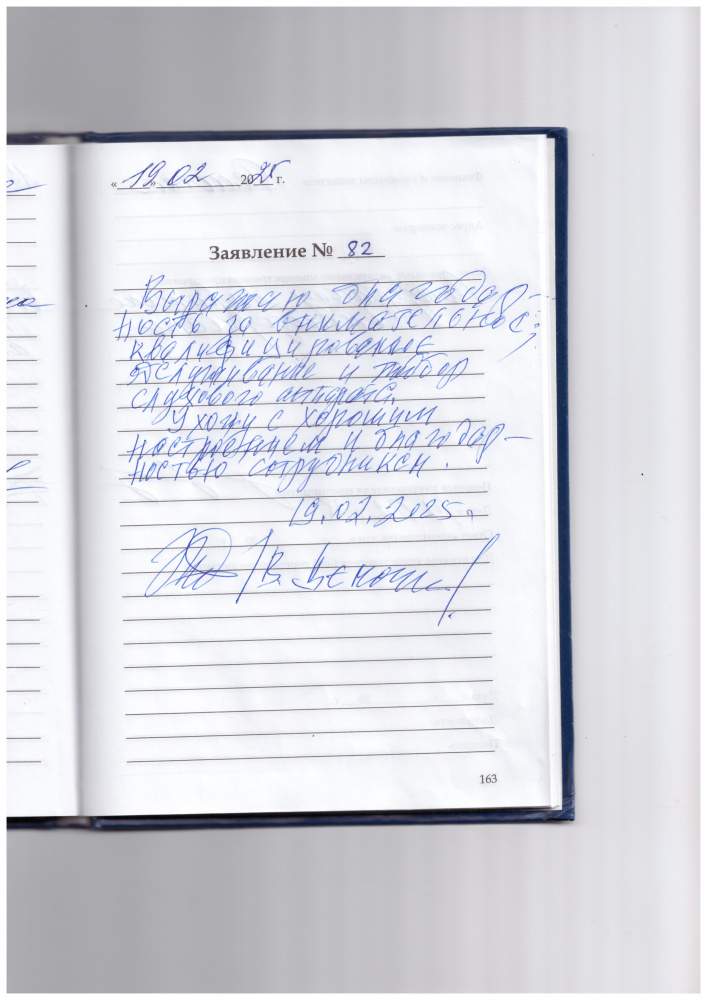 «19» 02 2025 г.
Заявление № 82
Выражаю благодар-
ность за внимательное,
квалифицированное
обслуживание и подбор
слухового аппарата.
Ухожу с хорошим
настроением и благодар-
ностью сотрудникам.
19.02.2025г.
163